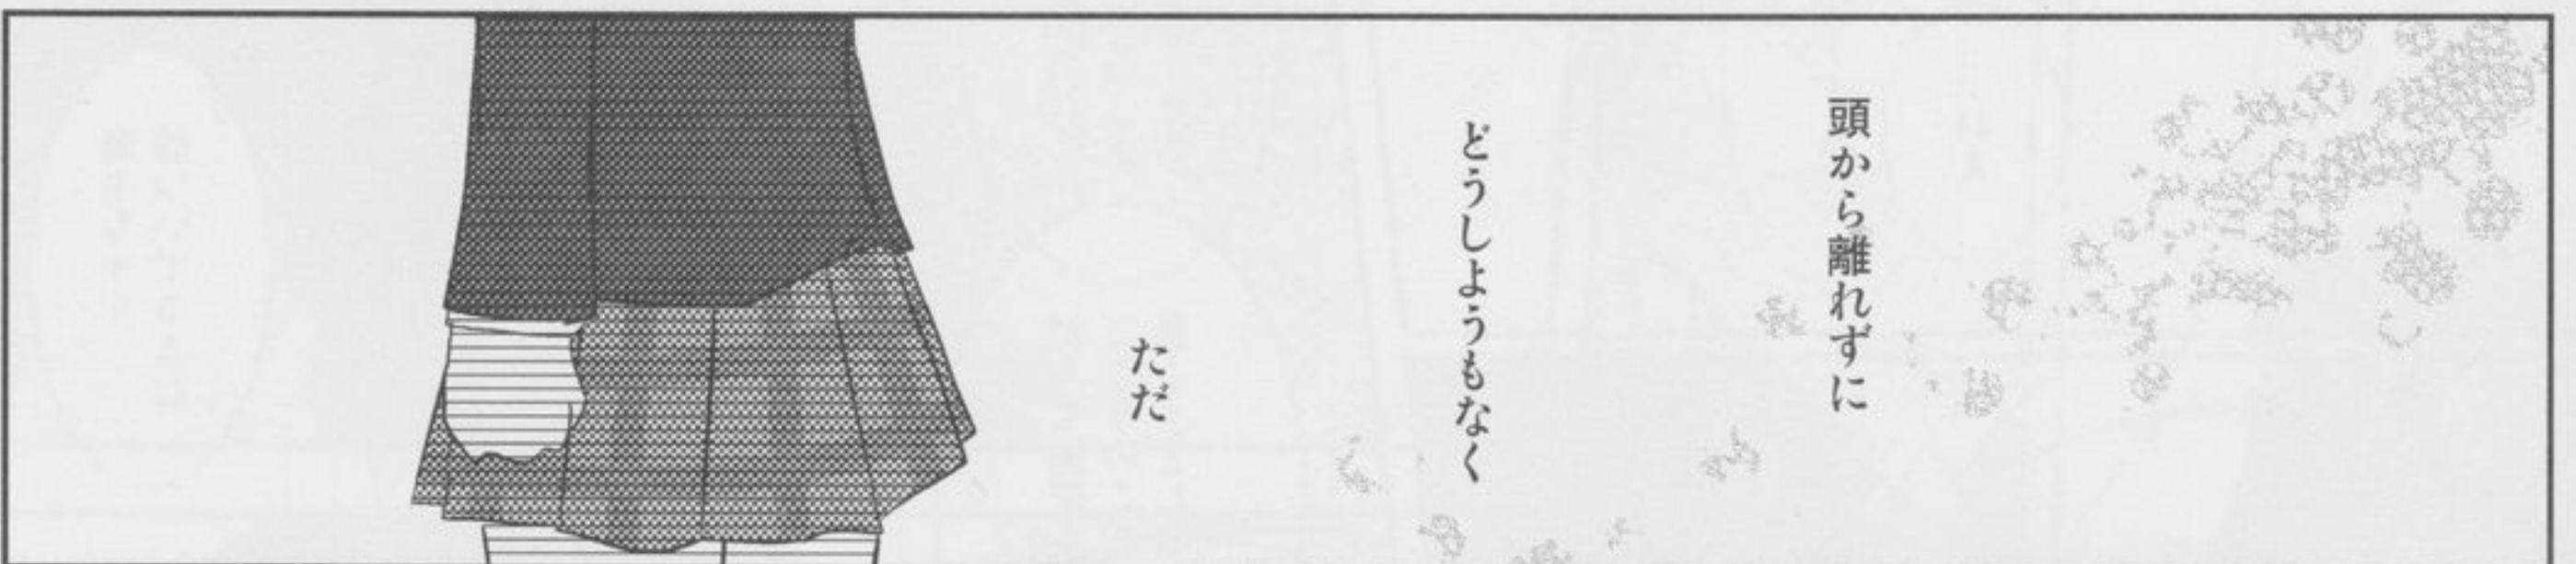 頭から離れずに
どうしようもなく
ただ